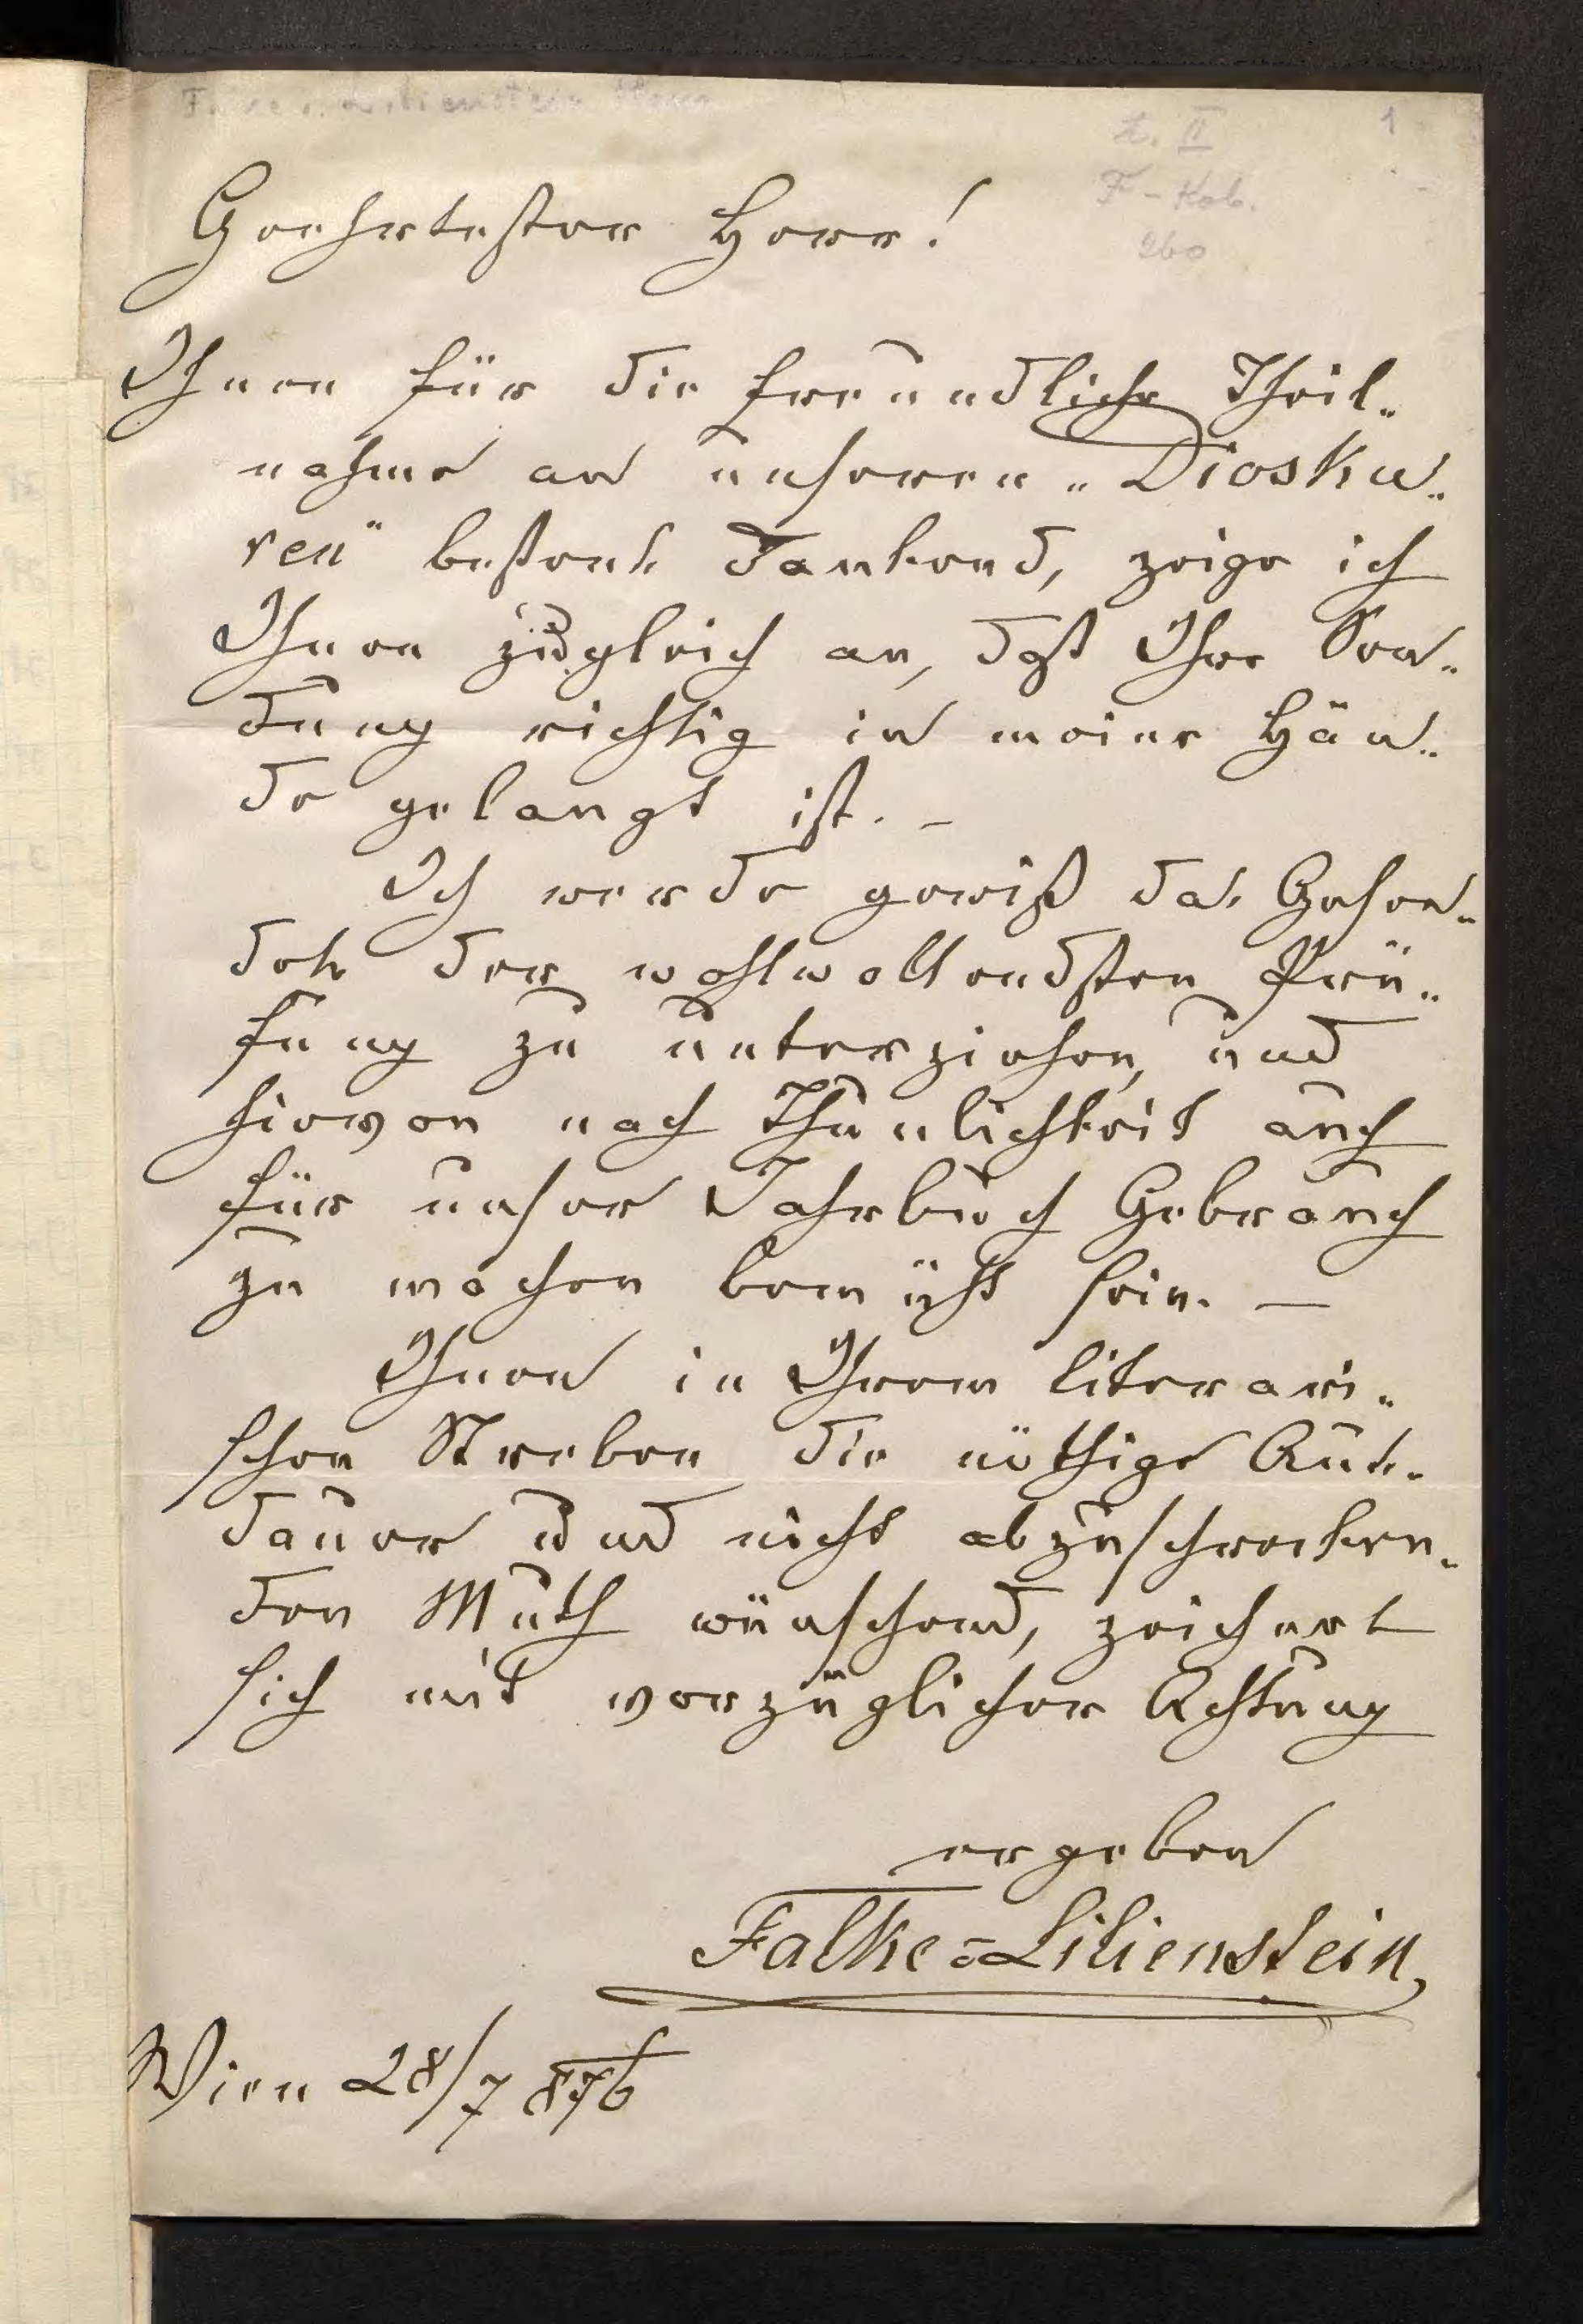 1
F-Kob.
260
Geehrtester Herr!
Ihnen für die freundliche Theil„
nahme an unseren „Diosku„
ren“ bestens dankend, zeige ich
Ihnen zugleich an, daß Ihre Sen„
dung richtig in meine Hän„
de gelangt ist. –
Ich werde gewiß das Gesen„
dete der wohlwollendsten Prü„
fung zu unterziehen, und
hievon nach Thunlichkeit auch
für unser Jahrbuch Gebrauch
zu machen bemüht sein. —
Ihnen in Ihrem literari„
schen Streben die nöthige Aus„
dauer und nicht abzuschrecken„
den Muth wünschend, zeichnet
sich mit vorzüglicher Achtung
ergeben
Falke=Lilienstein
Wien 28/7 876